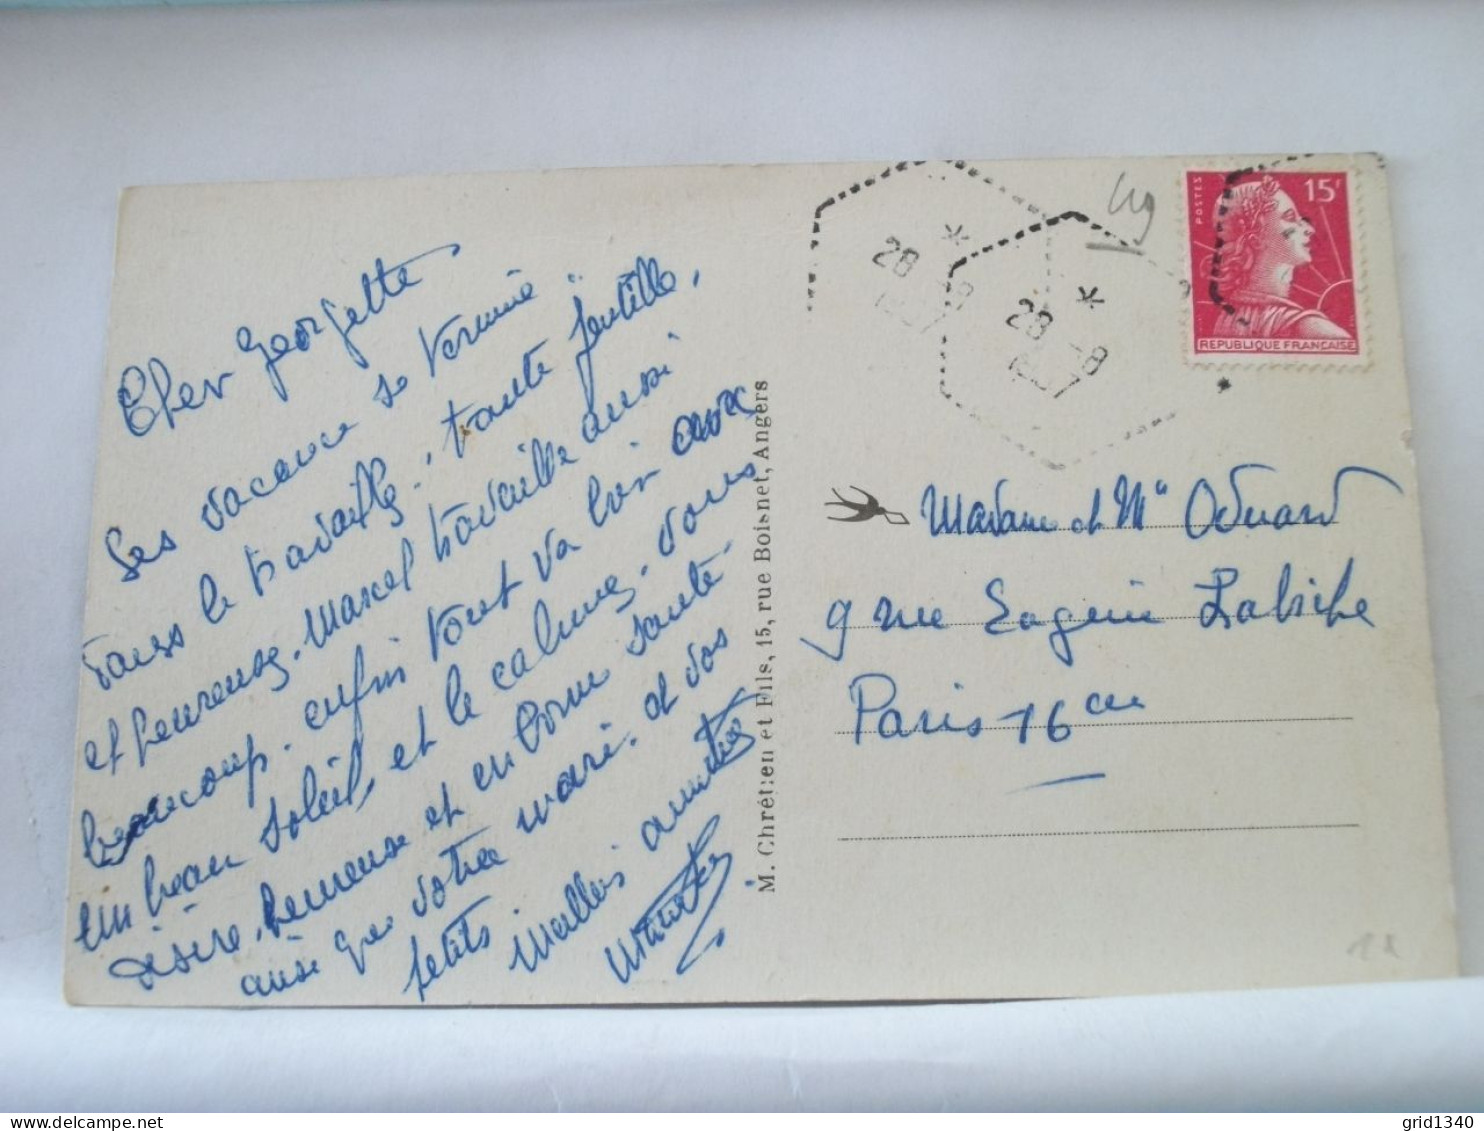 Cher Georgette
Les vacance se termine
dans le travaille, toute gentille,
et heureuse. Marcel travaille aussi
beaucoup. enfin tout va bien avec
un beau soleil, et le calme. vous
désire. heureuse et en bonne santé.
ainsi que votre mari. et vos
petits
amitiés
M. Chrétien et Fils, 15, rue Boisnet, Angers
49
28 -8
1957
28 -8
1957
POSTES
15F
REPUBLIQUE FRANCAISE
Madame et Mr Oduard
9 rue Eugène Labiche
Paris 16 em
grid1340